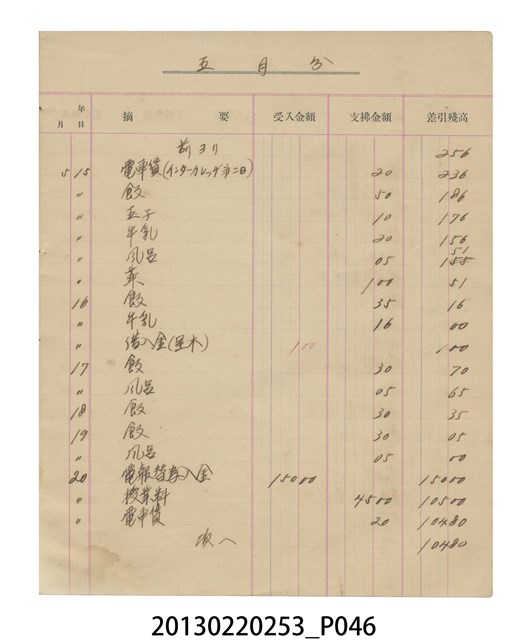 五月分
年 月 摘要 受入金額 支拂金額 差引殘高
前ヨリ 256
5 15 電車賃(インターカレッヂ第二日) 20 236
〃 飯 50 186
〃 玉子 10 176
〃 牛乳 20 156
〃 風呂 05 151
〃 100 51
16 飯 35 16
〃 牛乳 16 00
〃 借入金 100 100
17 飯 30 70
〃 風呂 05 65
18 飯 30 35
19 飯 30 05
〃 風呂 05 00
20 電報替受入金 15000 15000
〃 授業料 4500 10500
〃 電車賃 20 10480
次へ 10480
20130220253_P046